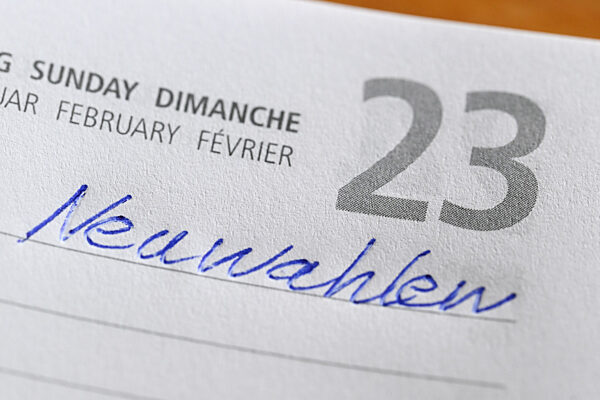 G SUNDAY DIMANCHE
UAR FEBRUARY FÉVRIER
23
Neuwahlen